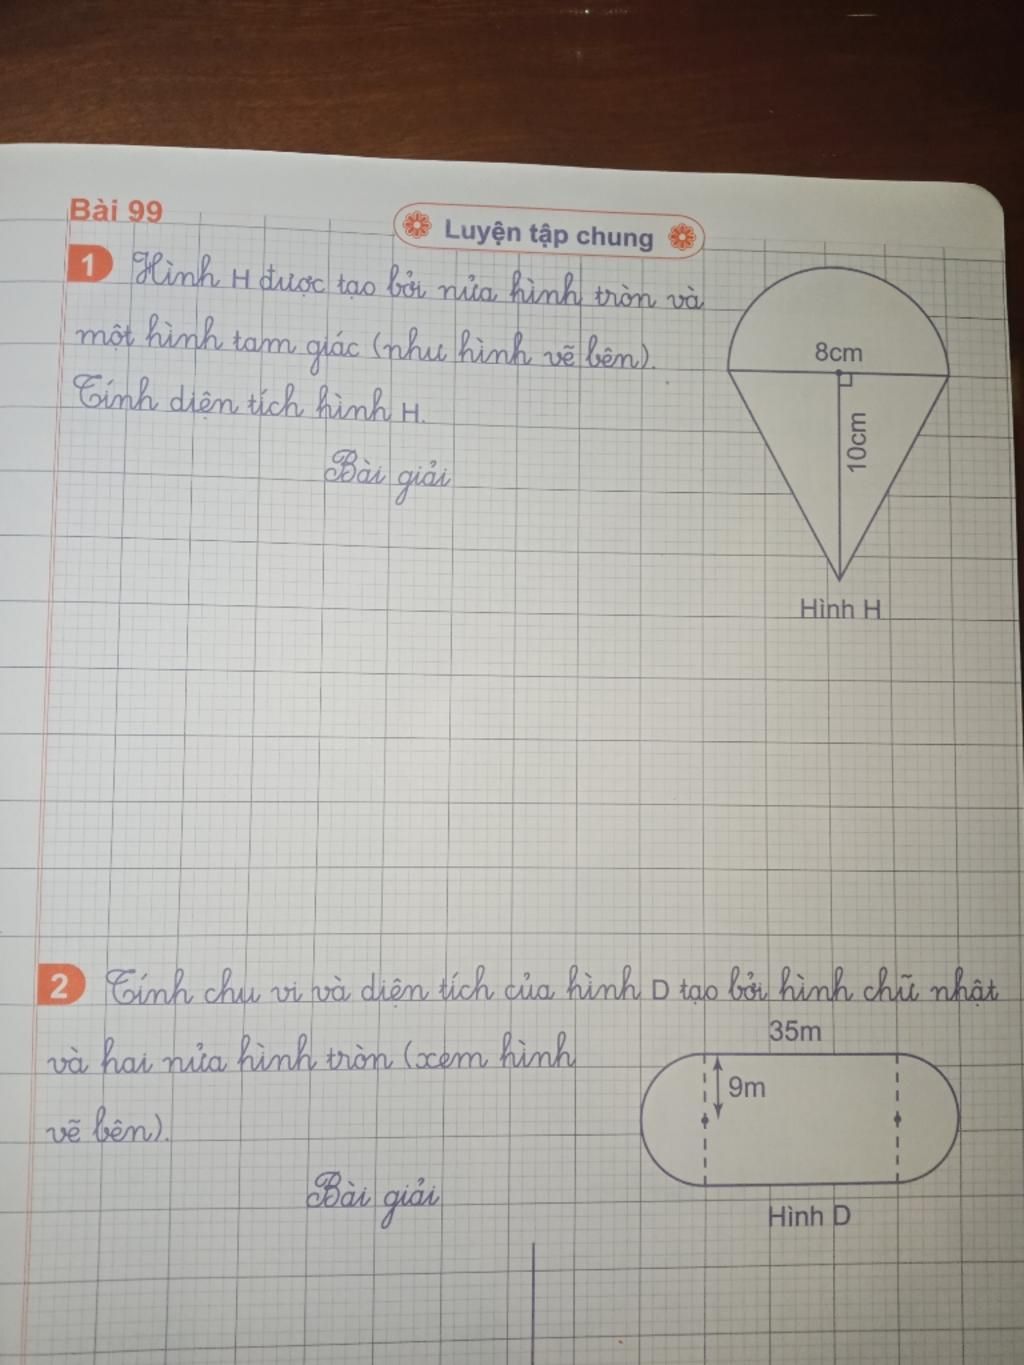 Bài 99
Luyện tập chung
1 Hình H được tạo bởi nửa hình tròn và
một hình tam giác (như hình vẽ bên).
Tính diện tích hình H.
Bài giải
8cm
10cm
Hình H
2 Tính chu vi và diện tích của hình D tạo bởi hình chữ nhật
và hai nửa hình tròn (xem hình
vẽ bên).
Bài giải
35m
9m
Hình D